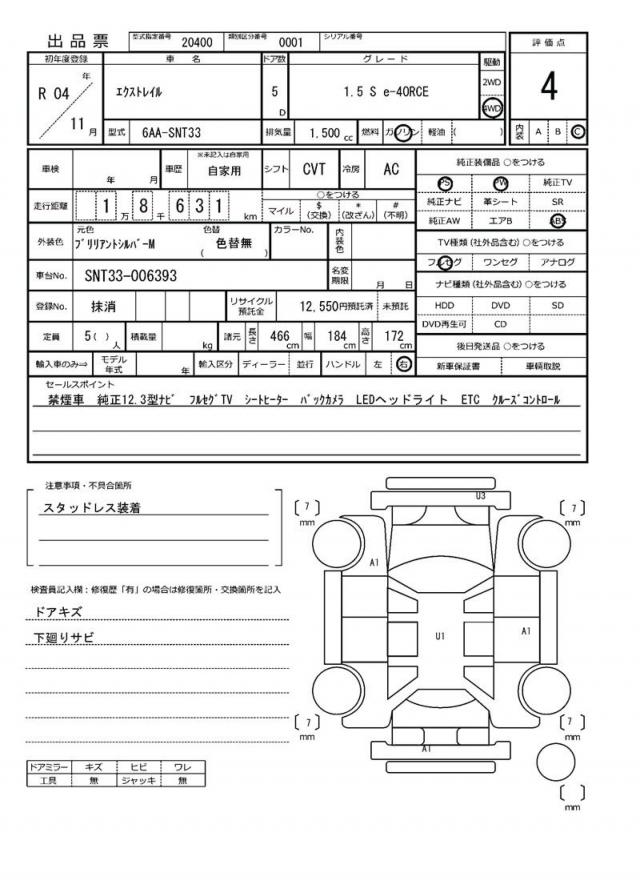 出品票 型式指定番号 20400 類別区分番号 0001 シリアル番号
評価点
4
内装 A B C
初年度登録 車名 ドア数 グレード 駆動
R 04 年 エクストレイル 5 D 1.5 S e-4ORCE 2WD
4WD
11 月 型式 6AA-SNT33 排気量 1.500 cc 燃料 ガソリン 軽油 ( )
車検 年 月 車歴 ※未記入は自家用 自家用 シフト CVT 冷房 AC
走行距離 1 万 8 千 6 3 1 km ○をつける
マイル $ (交換) * (改ざん) # (不明)
外装色 元色 ブリリアントシルバーM 色替 ( 色替無 ) カラーNo. 内装色
車台No. SNT33-006393 名変期限 月 日
登録No. 抹消 リサイクル預託金 12,550円預託済 未預託
定員 5( ) 人 積載量 kg 諸元 長さ 466 cm 幅 184 cm 高さ 172 cm
輸入車のみ⇒ モデル年式 年 輸入区分 ディーラー 並行 ハンドル 左 右
純正装備品 ○をつける
PS PW 純正TV
純正ナビ 革シート SR
純正AW エアB ABS
TV種類(社外品含む)○をつける
フルセグ ワンセグ アナログ
ナビ種類(社外品含む)○をつける
HDD DVD SD
DVD再生可 CD
後日発送品 ○をつける
新車保証書 車輌取説
セールスポイント
禁煙車 純正12.3型ナビ フルセグTV シートヒーター バックカメラ LEDヘッドライト ETC クルーズコントロール
注意事項・不具合箇所
スタッドレス装着
検査員記入欄:修復歴「有」の場合は修復箇所・交換箇所を記入
ドアキズ
下廻りサビ
ドアミラー キズ ヒビ ワレ
工具 無 ジャッキ 無
U3
[ 7 ] mm
[ 7 ] mm
A1
U1
A1
[ 7 ] mm
[ 7 ] mm
A1
[ ] mm